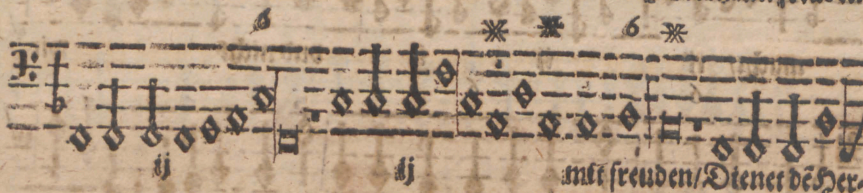 6 6
ij ij mit freuden/Dienet dē Her